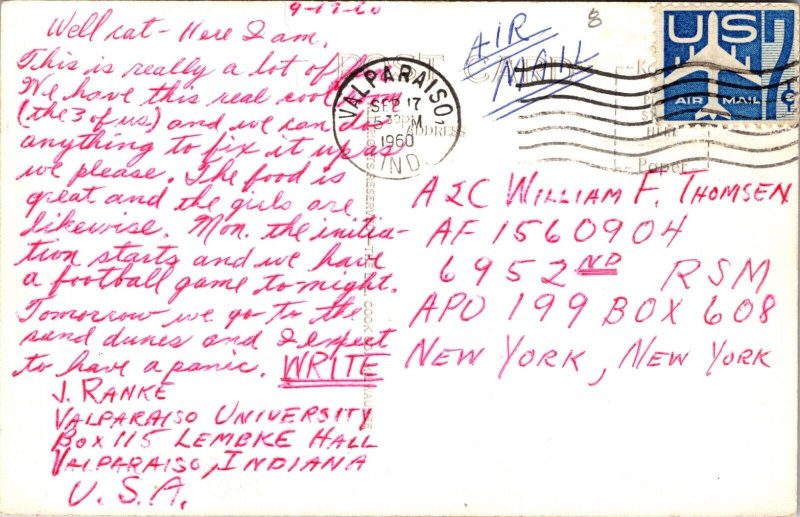 9-17-60
8
Well cat - Here I am.
This is really a lot of
We have this real cool
(the 3 of us) and we can do
anything to fix it up as
we please. The food is
great and the girls are
likewise. Mon. the initia-
tion starts and we have
a football game tonight.
Tomorrow we go to the
sand dunes and I expect
to have a panic. WRITE
J. RANKE
VALPARAISO UNIVERSITY
BOX 115 LEMBKE HALL
VALPARAISO, INDIANA
U.S.A.
POST CARD
ADDRESS
AIR
MAIL
VALPARAISO,
SEP 17
5 30 PM
1960
IND.
US
7¢
AIR MAIL
A2C WILLIAM F. THOMSEN
AF 1560904
6952ND RSM
APO 199 BOX 608
NEW YORK, NEW YORK